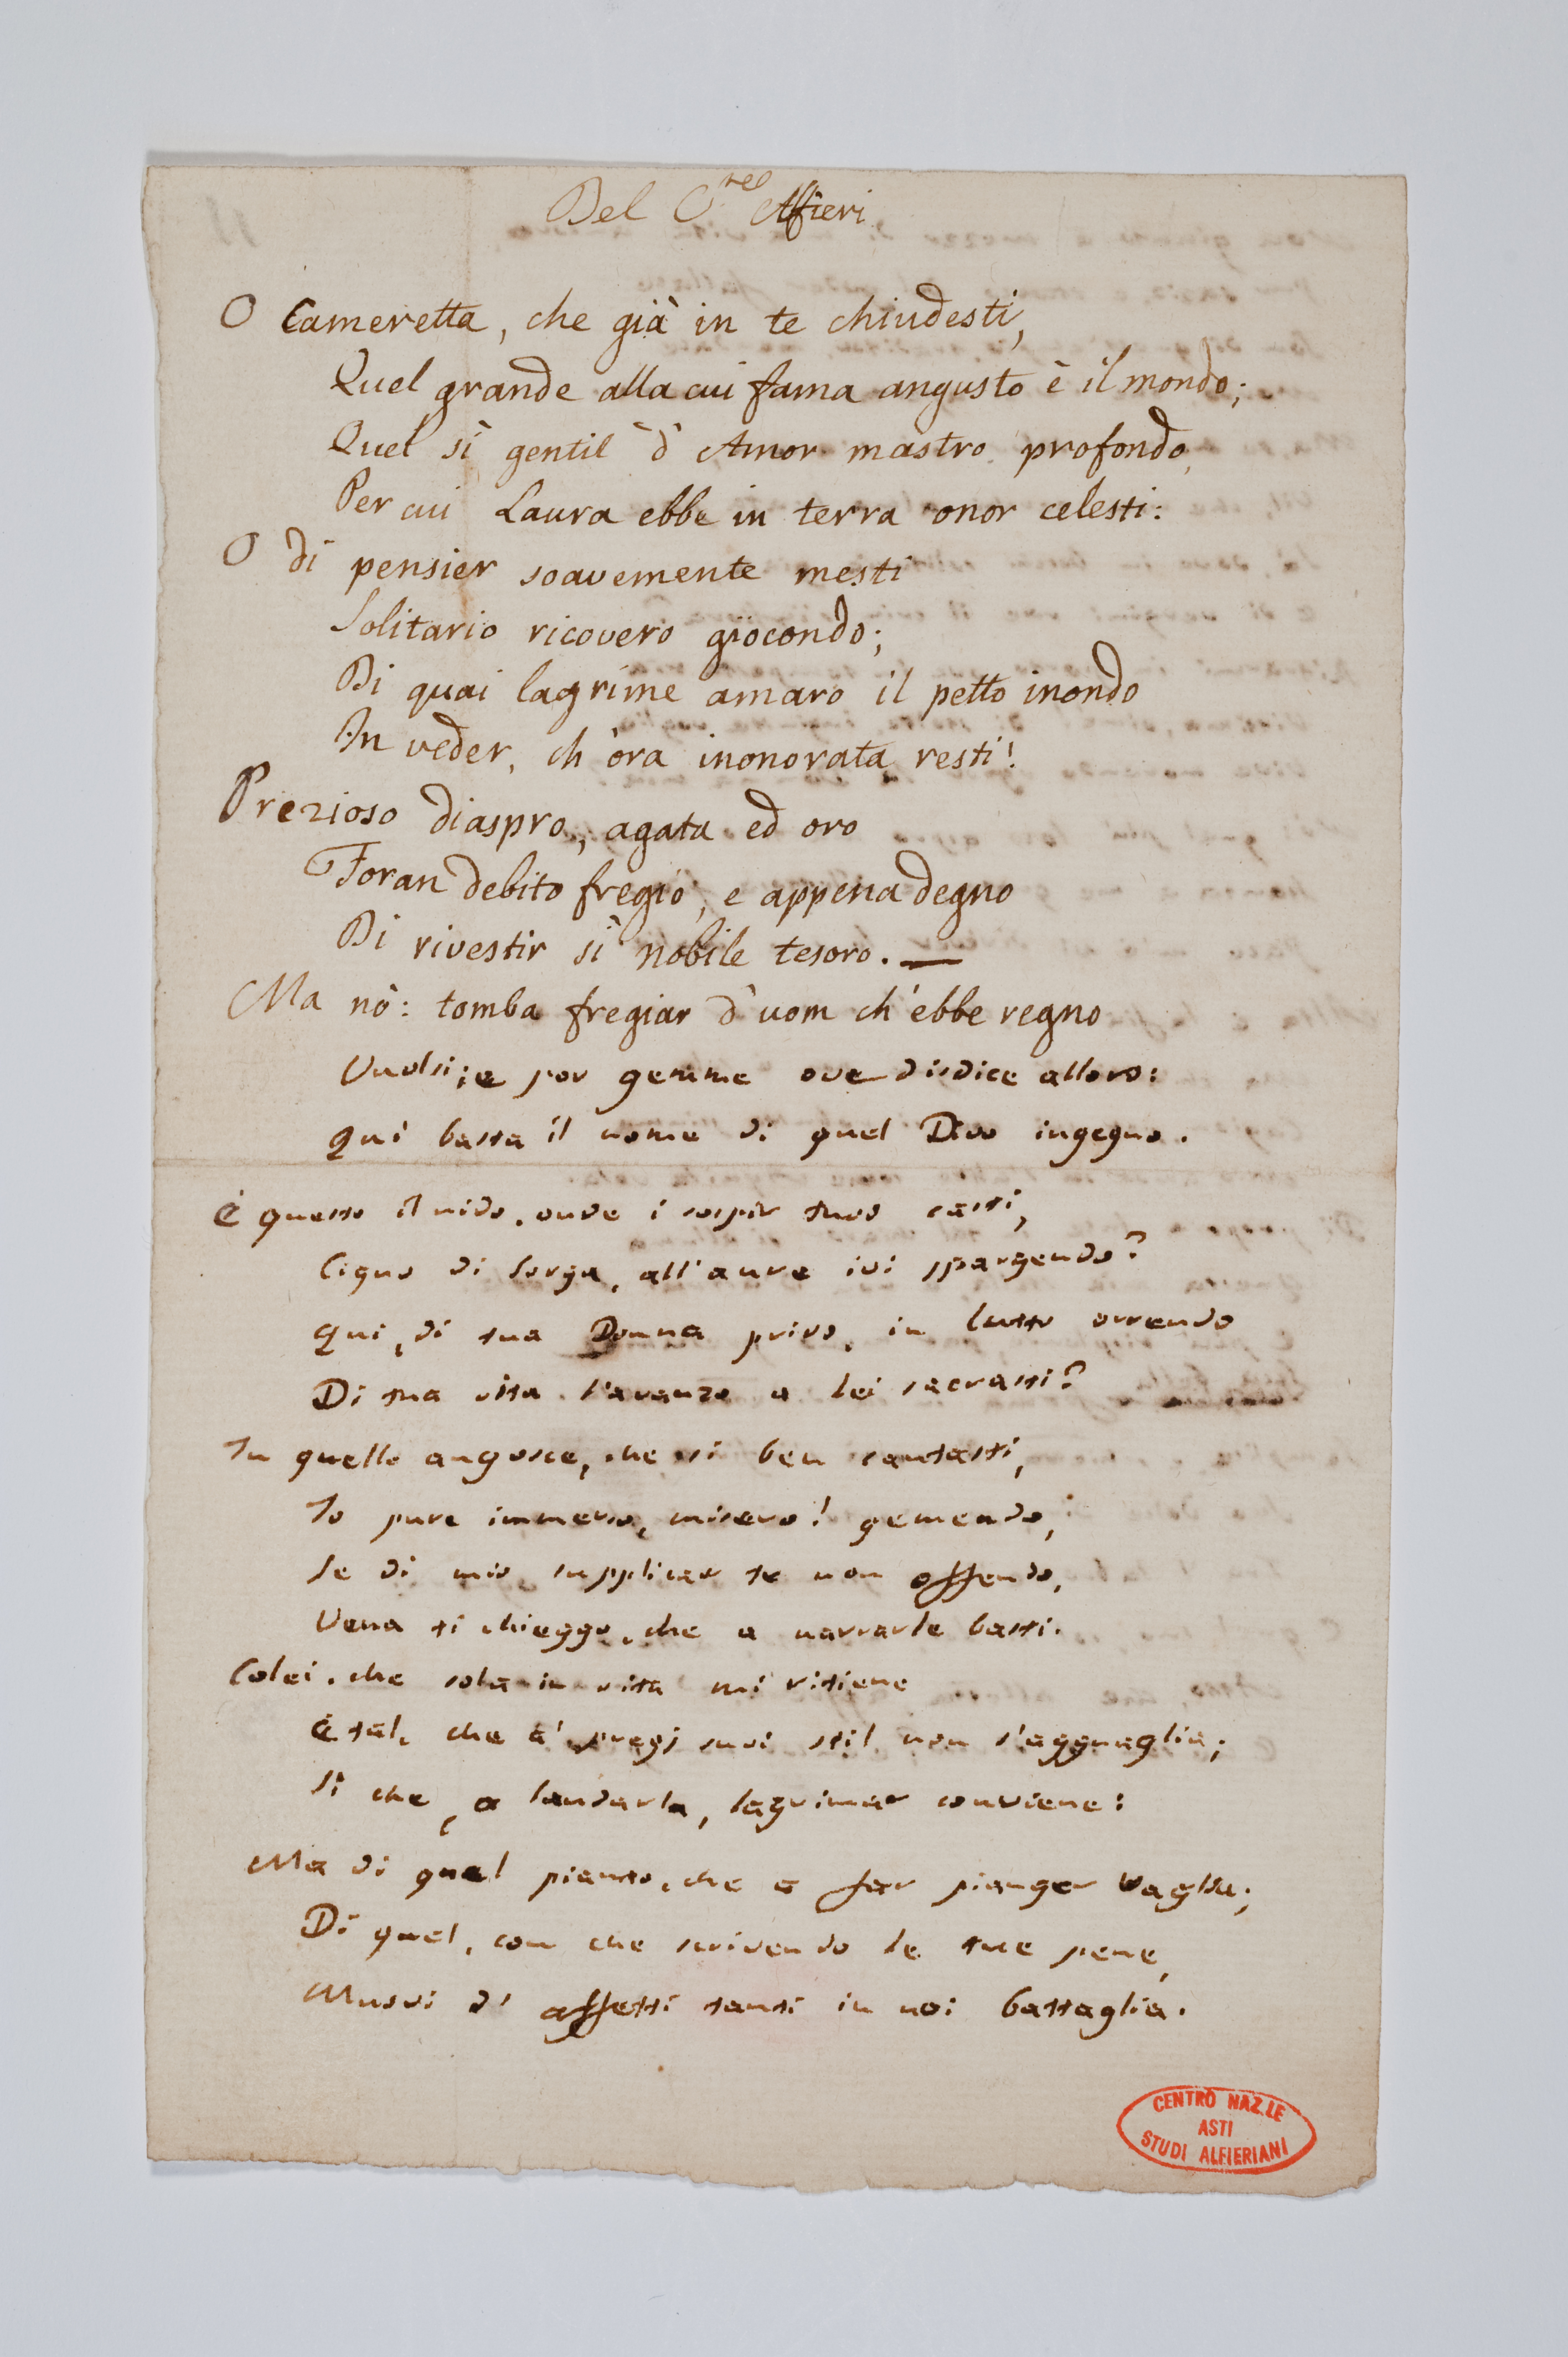 Del C.te Alfieri
O Cameretta, che già in te chiudesti,
Quel grande alla cui fama angusto è il mondo;
Quel sì gentil d' Amor mastro profondo,
Per cui Laura ebbe in terra onor celesti:
O di pensier soavemente mesti
Solitario ricovero giocondo;
Di quai lagrime amaro il petto inondo
In veder, ch' ora inonorata resti!
Prezioso diaspro, agata ed oro
Foran debito fregio, e appena degno
Di rivestir sì nobile tesoro. —
Ma nò: tomba fregiar d' uom ch' ebbe regno
Vuolsi; e por gemme ove disdice alloro:
Qui basta il nome di quel Divo ingegno.
È questo il nido, onde i sospir tuoi casti,
Cigno di Sorga, all'aure ivi spargendo?
Qui, di tua Donna privo, in lutto orrendo
Di tua vita l'avanzo a lei sacrasti?
In quelle angosce, che sì ben cantasti,
Io pure immerso, misero! gemendo,
Se di mio supplicar te non offendo,
Vena ti chieggo, che a narrarle basti.
Colei, che sola in vita mi ritiene
È tal, che a' pregj suoi stil non s'agguaglia;
Sì che, a laudarla, lagrimar conviene:
Ma di quel pianto, che a far pianger vaglia;
Di quel, con che scrivendo le tue pene,
Muovi d' affetti tanti in noi battaglia.
CENTRO NAZ.LE
ASTI
STUDI ALFIERIANI